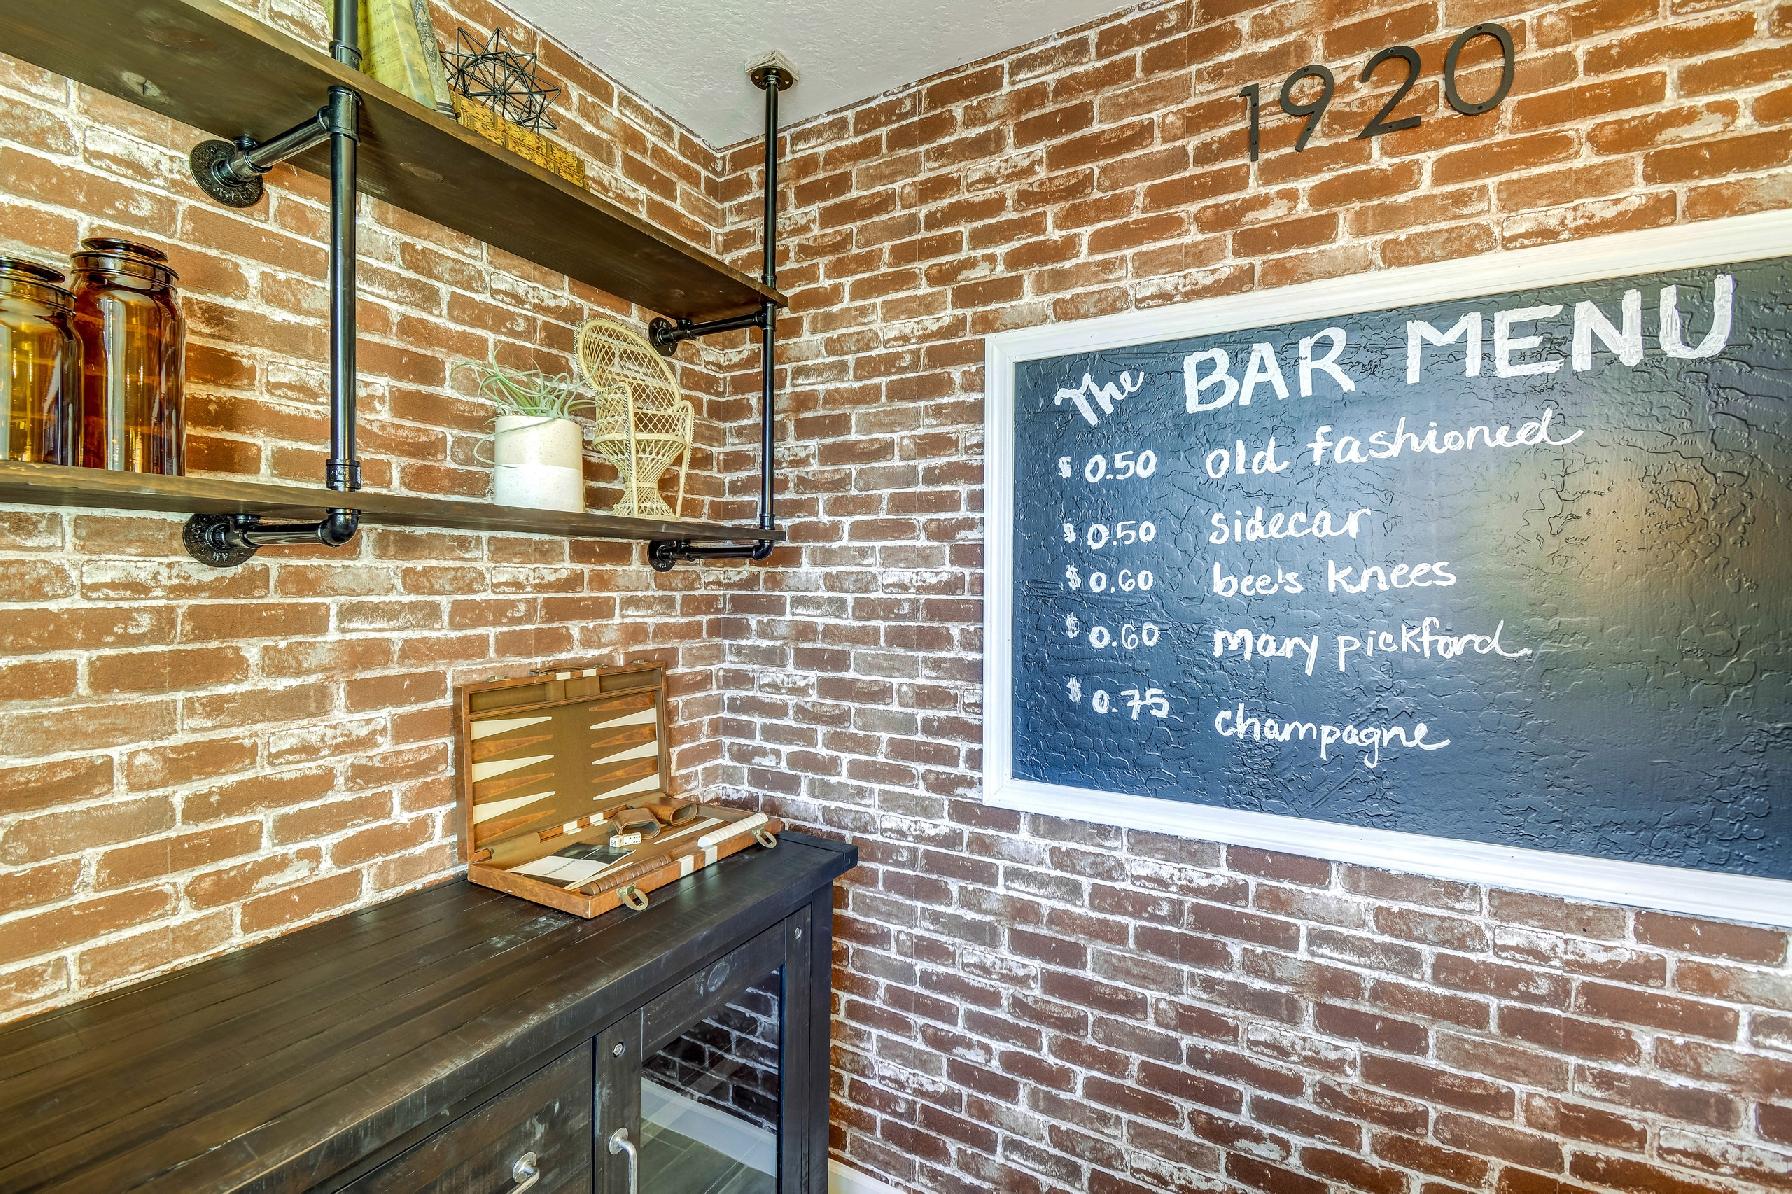 1920
The BAR MENU
$ 0.50 old fashioned
$ 0.50 sidecar
$ 0.60 bee's knees
$ 0.60 mary pickford
$ 0.75 champagne